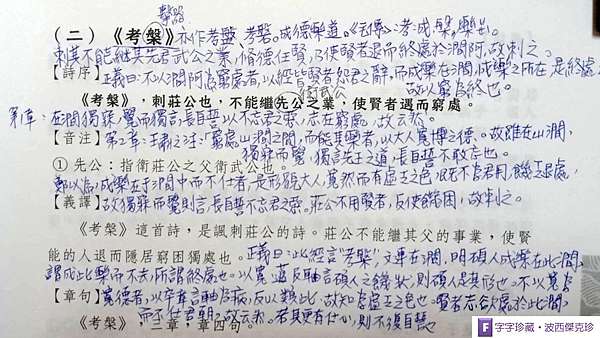 （二）《考槃》亦作考盤、考磐。成德樂道。《毛傳》：考，成。槃，樂也。
刺其不能繼其先君武公之業，脩德任賢，乃使賢者退而終處於澗阿，故刺之。
【詩序】正義曰：不以澗阿為窮處者，以經皆賢者怨君之辭，而成樂在澗，成樂之所在，是終處之
故以窮為終也。
衛武公
《考槃》，刺莊公也，不能繼先公之業，使賢者退而窮處。
第1章：在澗獨寐，覺而獨言，長自誓以不忘君之惡，志在窮處，故云然。
【音注】第1章：王肅之注：「窮處山澗之間，而能其樂者，以大人寬博之德。故雖在山澗，
獨寐而覺，獨言先王之道，長自誓不敢忘也。
① 先公：指衛莊公之父衛武公也。
鄭以為，成樂在于澗中而不仕者，是形貌大人，寬然而有虛乏之色，既不為君用，饑乏退處，
【義譯】故獨寐而覺則言，長自誓不忘君之惡。莊公不用賢者，反使饑困，故刺之。
《考槃》這首詩，是諷刺莊公的詩。莊公不能繼其父的事業，使賢
能的人退而隱居窮困獨處也。正義曰：此經言「考槃」，文連在澗，明碩人成樂在此澗，
謂成此樂而不去，所謂終處也。以寬、薖及軸言碩人之饑狀，則碩人是其形也。不以寬為
【章句】寬德者，以卒章言軸為病，反以類此，故知為虛乏之色也。賢者志欲處於此澗，
而不仕君朝，故云然。若其更有仕心，則不復自誓。
《考槃》，三章，章四句。
字字珍藏・波西傑克珍